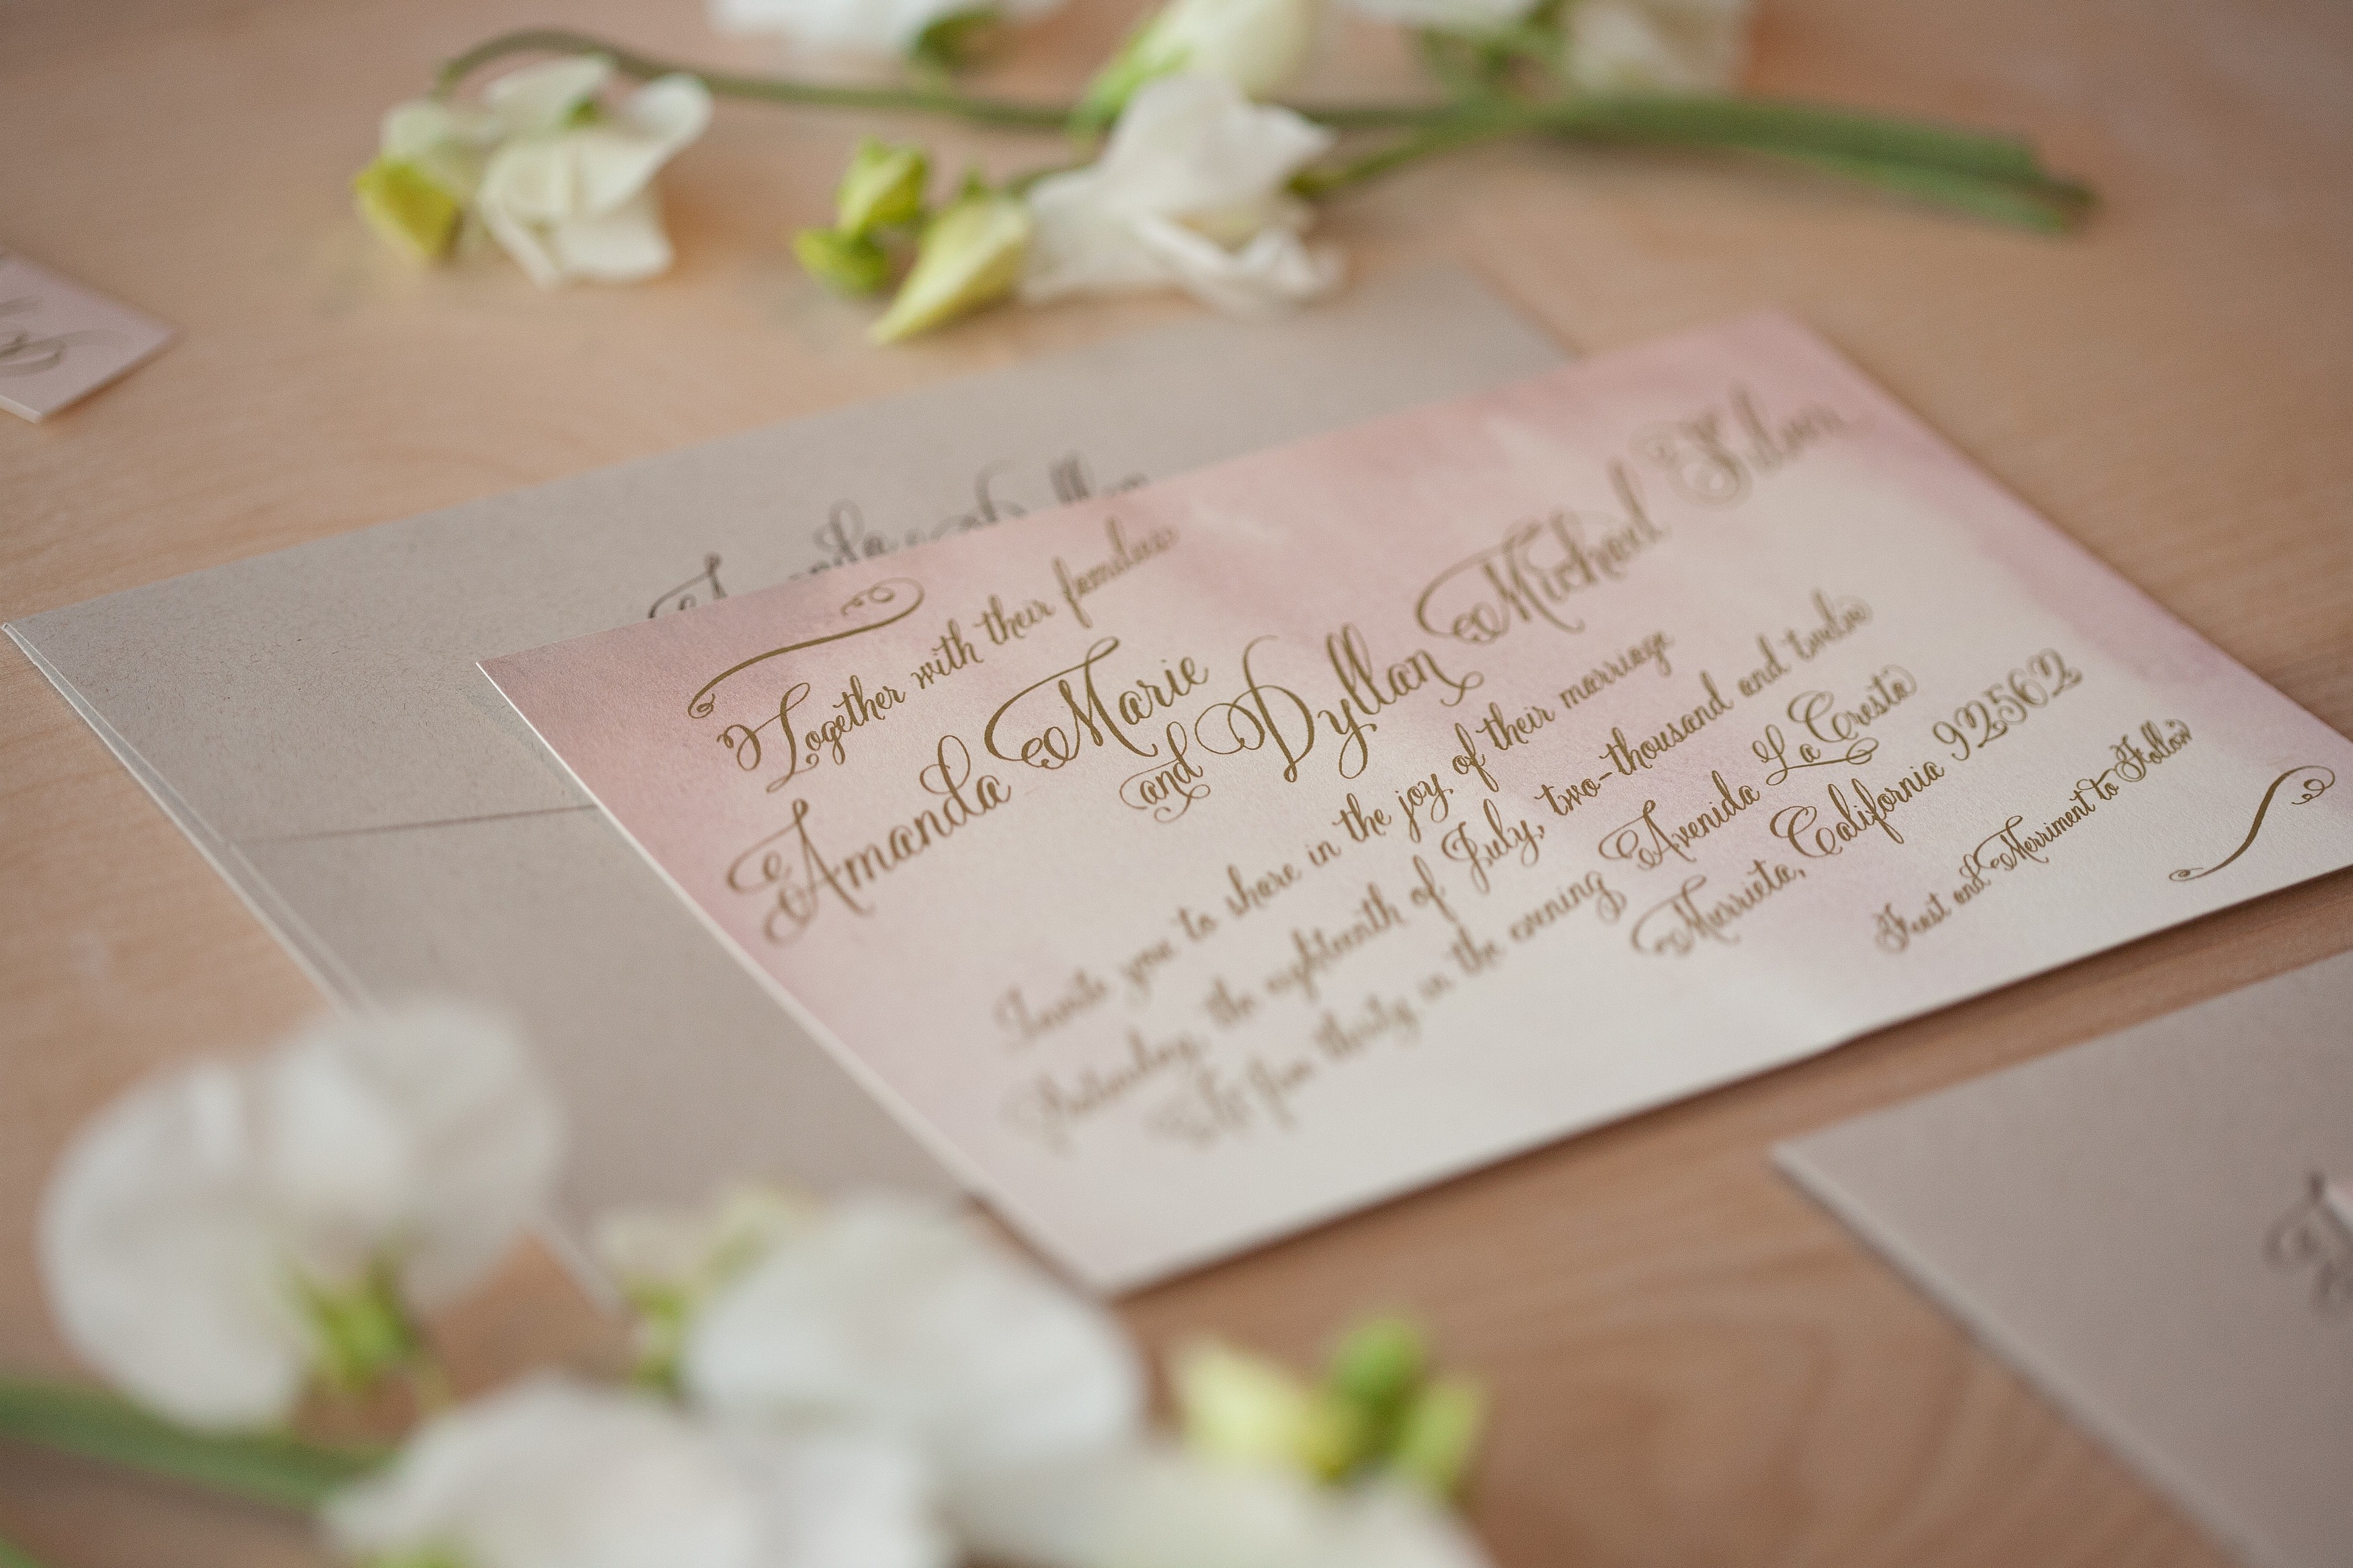 Together with their families
Amanda Marie
and
Dyllan Michael
Invite you to share in the joy of their marriage
the eighteenth of July, two-thousand and twelve
five thirty in the evening Avenida La Cresta
Murrieta, California 92562
Feast and Merriment to Follow